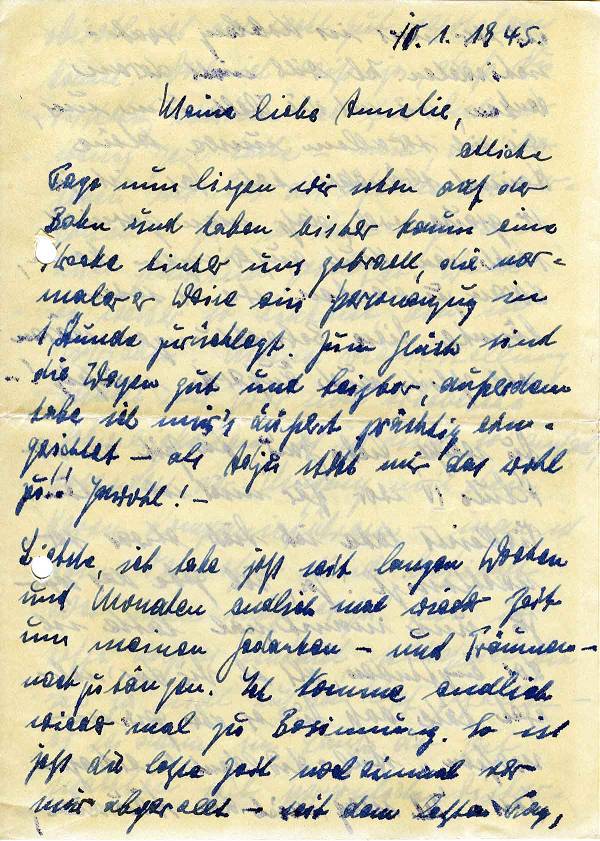 10. 1. 1945.
Meine liebe Annelie,
etliche
Tage nun liegen wir schon auf der
Bahn und haben bisher kaum eine
Strecke hinter uns gebracht, die nor-
maler er Weise ein Personenzug in
1 Stunde zurücklegt. Zum Glück sind
die Wagen gut und heizbar, außerdem
habe ich mir's äußerst prächtig ein-
gerichtet – als Adju steht mir das wohl
zu!! Jawohl! –
Liebste, ich habe jetzt seit langen Wochen
und Monaten endlich mal wieder Zeit
um meinen Gedanken – und Träumen –
nachzuhängen. Ich komme endlich
wieder mal zu Besinnung. So ist
jetzt die letzte Zeit noch einmal vor
mir abgerollt – seit dem letzten Tag,